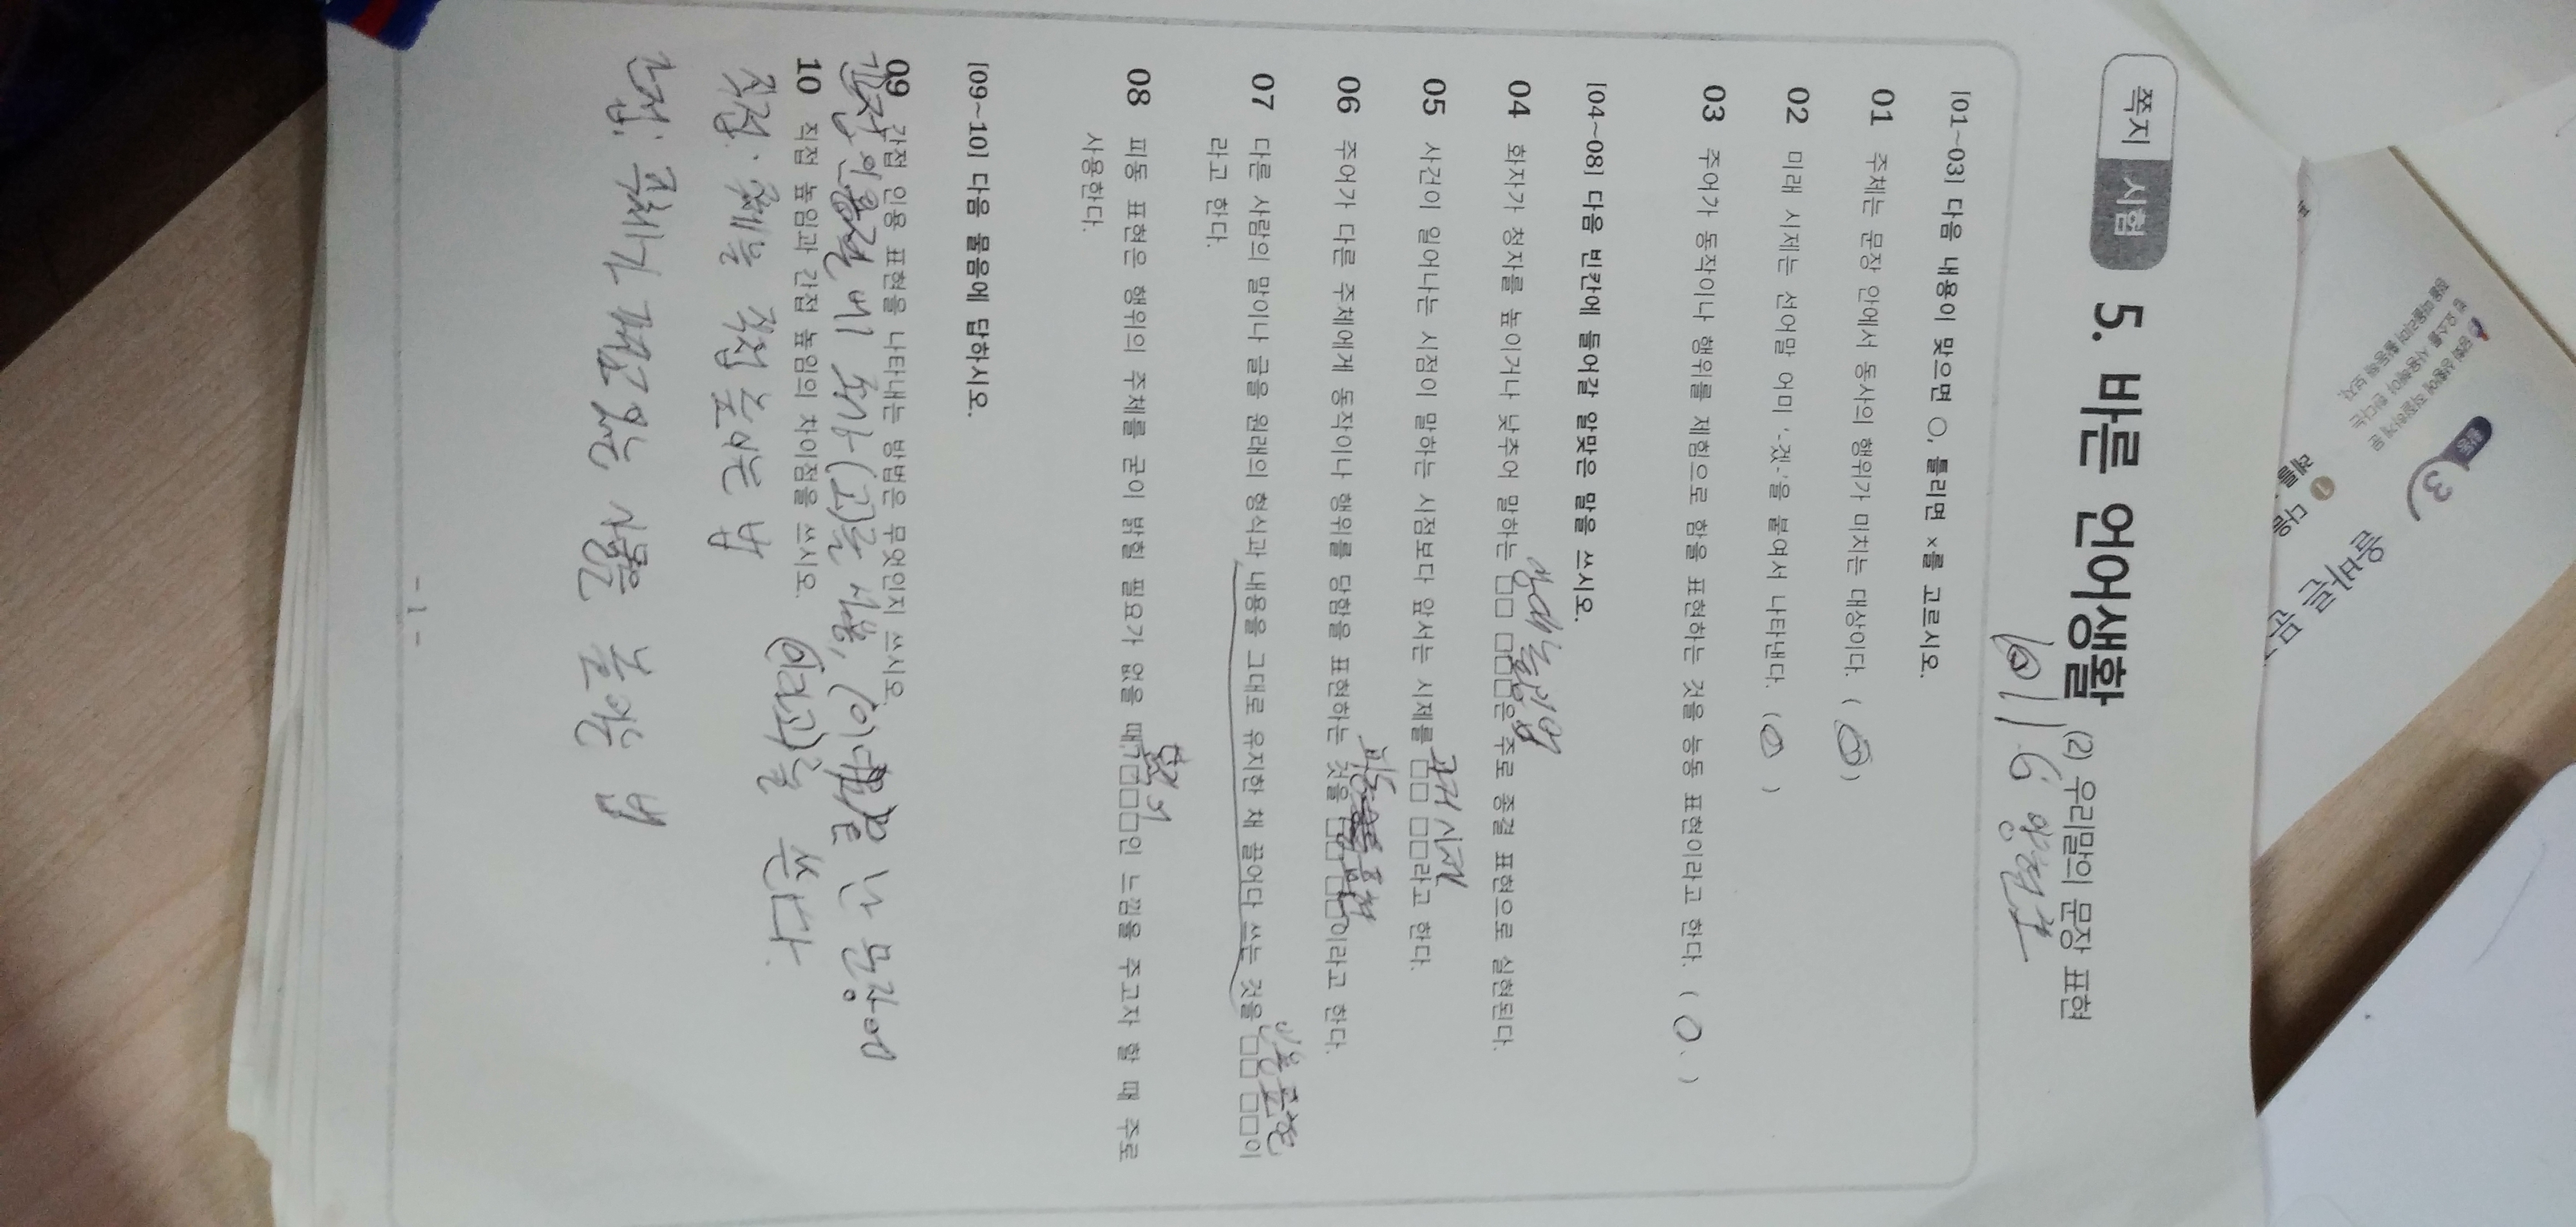 쪽지 시험 5. 바른 언어생활 (2) 우리말의 문장 표현
[01~03] 다음 내용이 맞으면 ○, 틀리면 ×를 고르시오.
01 주체는 문장 안에서 동사의 행위가 미치는 대상이다. ( )
02 미래 시제는 선어말 어미 '-겠-'을 붙여서 나타낸다. ( O )
03 주어가 동작이나 행위를 제힘으로 함을 표현하는 것을 능동 표현이라고 한다. ( O )
[04~08] 다음 빈칸에 들어갈 알맞은 말을 쓰시오.
상대 높임법
04 화자가 청자를 높이거나 낮추어 말하는 □□ □□□은 주로 종결 표현으로 실현된다.
과거 시제
05 사건이 일어나는 시점이 말하는 시점보다 앞서는 시제를 □□ □□라고 한다.
피동 표현
06 주어가 다른 주체에게 동작이나 행위를 당함을 표현하는 것을 □□ □□이라고 한다.
인용 표현
07 다른 사람의 말이나 글을 원래의 형식과 내용을 그대로 유지한 채 끌어다 쓰는 것을 □□ □□이
라고 한다.
08 피동 표현은 행위의 주체를 굳이 밝힐 필요가 없을 때나 □□□인 느낌을 주고자 할 때 주로
사용한다.
[09~10] 다음 물음에 답하시오.
09 간접 인용 표현을 나타내는 방법은 무엇인지 쓰시오.
간접 인용절에 조사 (고)를 사용, (이다)로 끝난 문장에
(이라고)를 쓴다.
10 직접 높임과 간접 높임의 차이점을 쓰시오.
직접: 주체를 직접 높이는 법
간접: 주체가 갖고 있는 사물을 높이는 법
- 1 -
3
올바른
1 다음